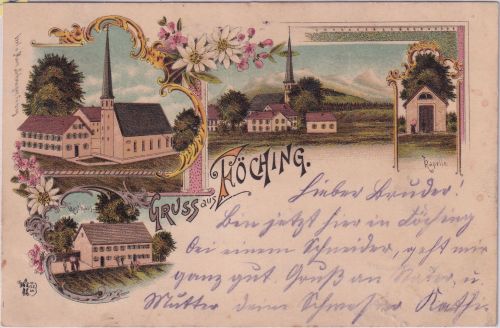 Gruss aus Föching.
Kapelle
Lieber Bruder!
Bin jetzt hier in Föching
bei einem Schneider, geht mir
ganz gut Gruß an Vater, u
Mutter deine Schwester Kathi.